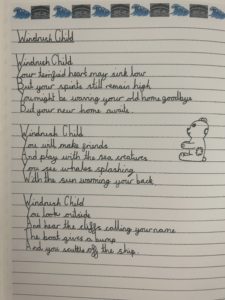 Windrush Child
Windrush Child
Your terrified heart may sink low
But your spirits still remain high
You might be waving your old home goodbye
But your new home awaits.
Windrush Child
You will make friends
And play with the sea creatures
You see whales splashing
With the sun warming your back.
Windrush Child
You look outside
And hear the cliffs calling your name
The boat gives a bump
And you scuttle off the ship.